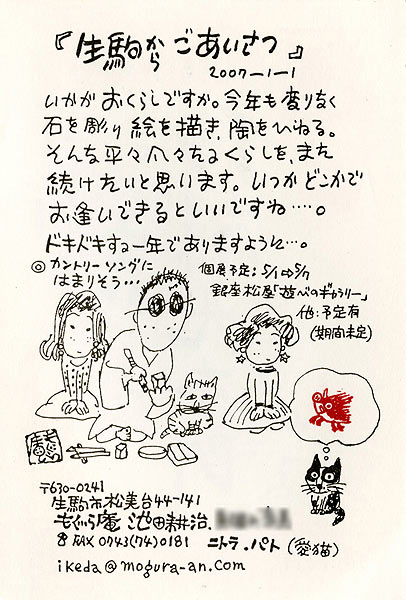 『生駒からごあいさつ』
2007-1-1
いかがおくらしですか。今年も変りなく
石を彫り絵を描き、陶をひねる。
そんな平々凡々たるくらしを、また
続けたいと思います。いつかどこかで
お逢いできるといいですね……。
ドキドキする一年でありますように…。
◎カントリーソングに
はまりそう…
個展予定:5/1⇨5/7
銀座松屋「遊びのギャラリー」
他:予定有
(期間未定)
〒630-0241
生駒市松美台44-141
もぐら庵 池田耕治.
FAX 0743(74)0181
ニトラ.パト(愛猫)
ikeda@mogura-an.com